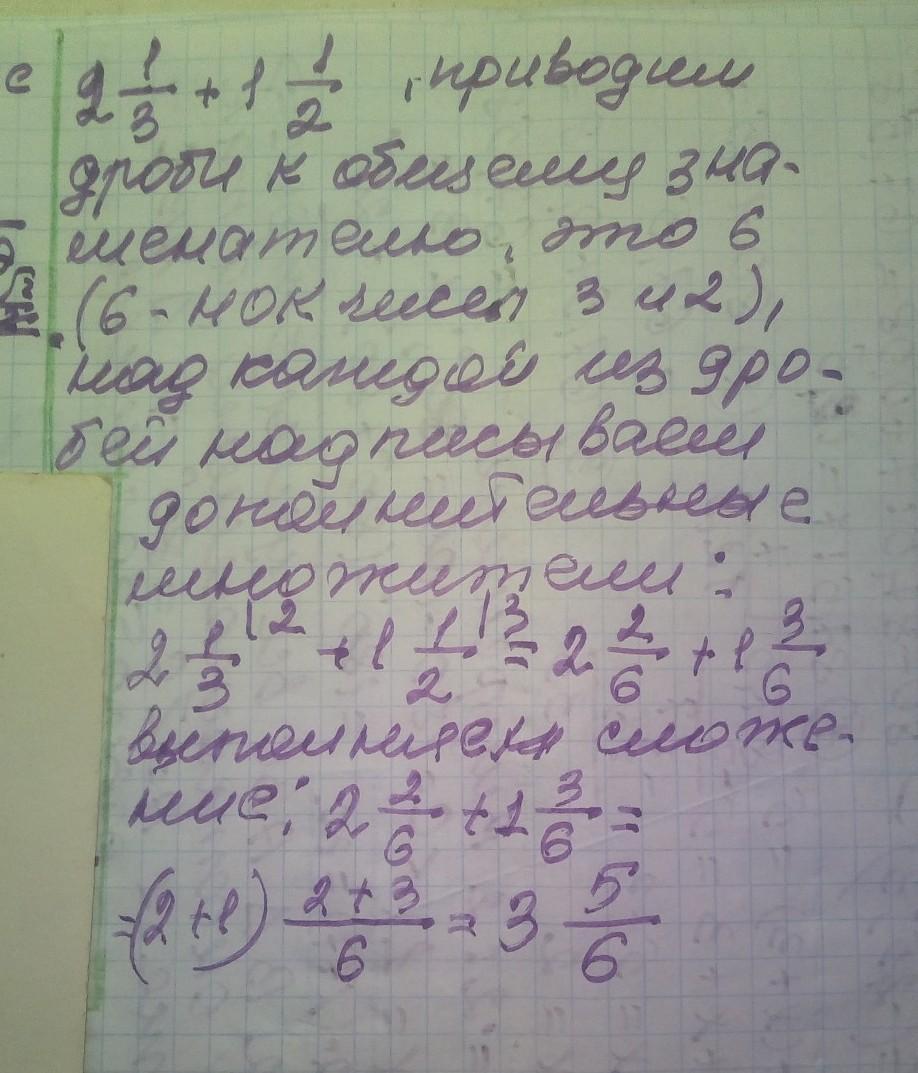 с 2 1/3 + 1 1/2 , приводим
дроби к общему зна-
менателю, это 6
(6 - НОК чисел 3 и 2),
над каждой из дро-
бей надписываем
дополнительные
множители:
2 1/3 |2 + 1 1/2 |3 = 2 2/6 + 1 3/6
выполняем сложе-
ние: 2 2/6 + 1 3/6 =
=(2+1) (2+3)/6 = 3 5/6